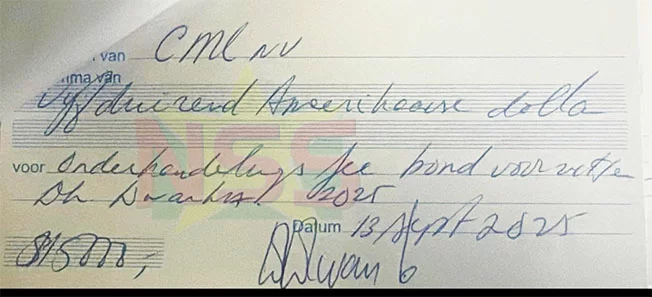 van CML NV
ma van
Vijfduizend Amerikaanse dolla
NSS
voor Onderhandelings fee bond voorzitter
Dh 2025
Datum 13 Sept 2025